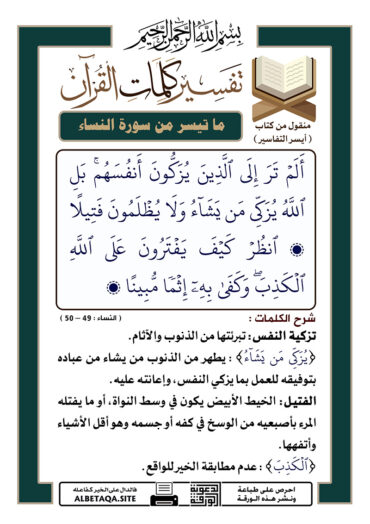 بِسْمِ اللَّهِ الرَّحْمَٰنِ الرَّحِيمِ
تفسير كلمات القرآن
ما تيسر من سورة النساء
منقول من كتاب
( أيسر التفاسير )
أَلَمْ تَرَ إِلَى ٱلَّذِينَ يُزَكُّونَ أَنفُسَهُمۚ بَلِ
ٱللَّهُ يُزَكِّي مَن يَشَآءُ وَلَا يُظْلَمُونَ فَتِيلًا
۞ ٱنظُرْ كَيْفَ يَفْتَرُونَ عَلَى ٱللَّهِ
ٱلْكَذِبَۖ وَكَفَىٰ بِهِۦٓ إِثْمًا مُّبِينًا ۞
شرح الكلمات :
( النساء : 49 – 50 )
تزكية النفس: تبرئتها من الذنوب والآثام.
﴿يُزَكِّي مَن يَشَآءُ﴾ : يطهر من الذنوب من يشاء من عباده
بتوفيقه للعمل بما يزكي النفس، وإعانته عليه.
الفتيل: الخيط الأبيض يكون في وسط النواة، أو ما يفتله
المرء بأصبعيه من الوسخ في كفه أو جسمه وهو أقل الأشياء
وأتفهها.
﴿ٱلْكَذِبَ﴾ : عدم مطابقة الخبر للواقع.
احرص على طباعة
ونشر هذه الورقة
الدعوية
الورقة
فالدال على الخير كفاعله
ALBETAQA.SITE